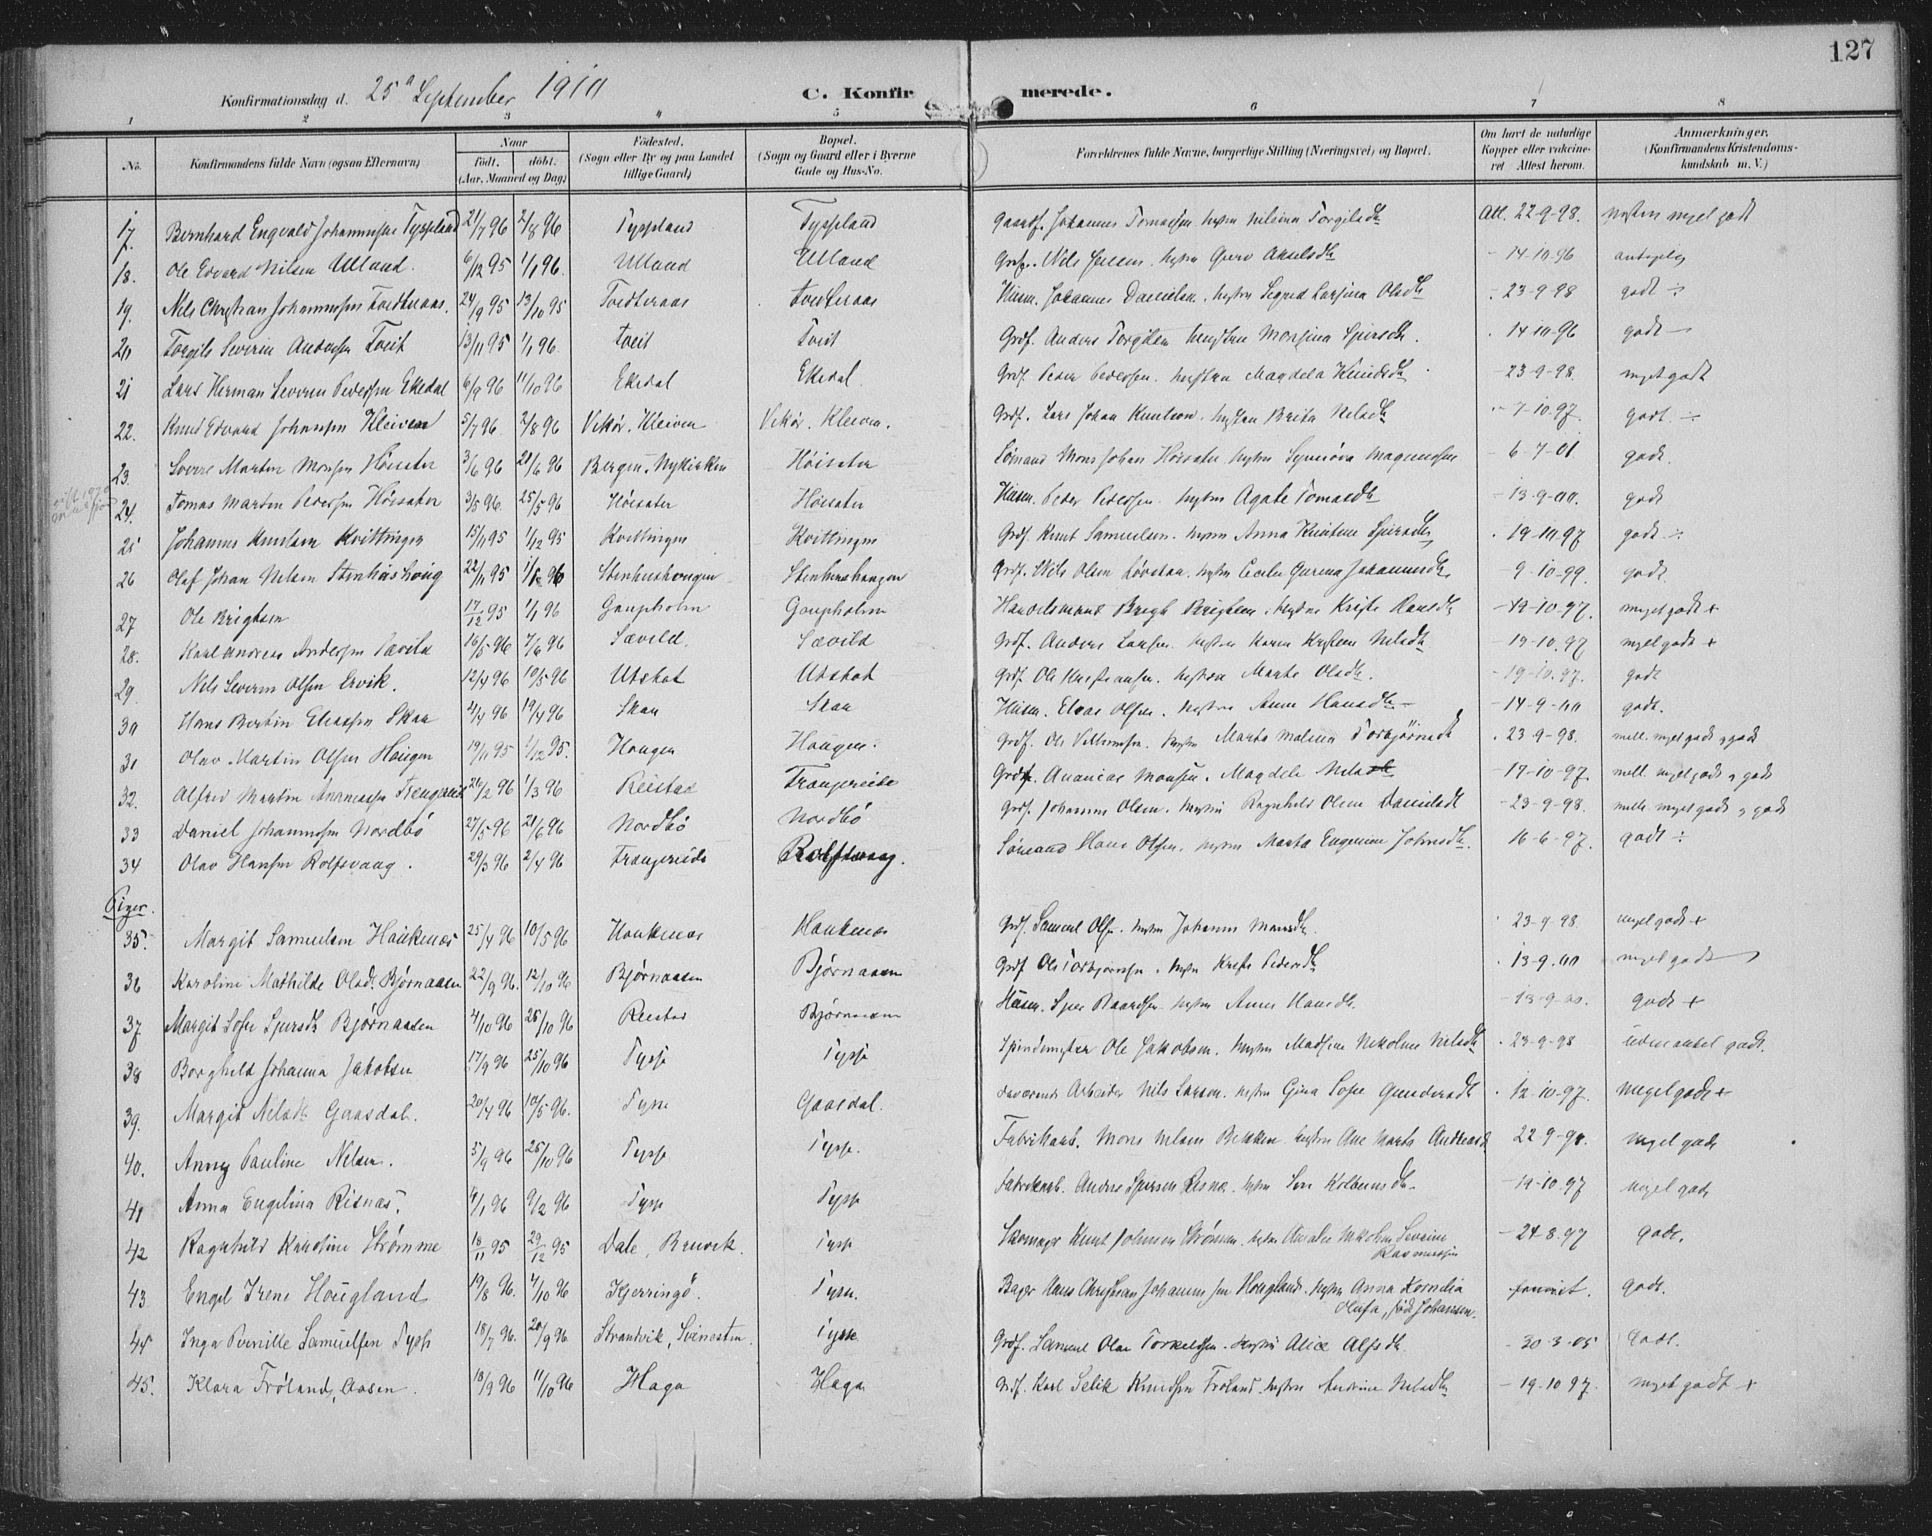 127
Konfirmationsdag d. 25d September 1910 C. Konfirmerede.
1 2 3 4 5 6 7 8
No. Konfirmandens fulde Navn (ogsaa Efternavn) Naar født, døbt. (Aar, Maaned og Dag) Fødested. (Sogn eller By og paa Landet tillige Gaard) Bopæl. (Sogn og Gaard eller i Byerne Gade og Hus-No. Forældrenes fulde Navne, borgerlige Stilling (Næringsvei) og Bopæl. Om havt de naturlige Kopper eller vaccineret Attest herom. Anmærkninger. (Konfirmandens Kristendomskundskab m. V.)
17. Bernhard Engvald Johannessen Tyssland 21/7 96 2/8 96 Tyssland Tyssland Gaardf. Johannes Tomassen hustru Nilsina Torgilsdtr Att. 22-9-98. næsten meget godt
18. Ole Edvard Nilsen Ulland. 6/12 95 1/1 96. Ulland Ulland Grdf. Nils hustru Guro Akselsdtr - 14-10-96 antagelig
19. Nils Christian Johannessen Tvedteraas. 24/9 95 13/10 95 Tvedteraas Tvedteraas Husm. Johannes Danielsen. hustru Sigrid Larsina Olsdtr 23-9-98 godt ÷
20 Torgils Severin Andersen Tveit 13/11 95 1/1 96. Tveit Tveit Grdf. Anders Torgilsen hustru Monsina Sjursdtr. 14-10-96 godt
21 Lars Herman Severin Pedersen Ekedal 6/9 96 11/10 96 Ekedal Ekedal Grdf. Peder Pedersen. hustru Magdela Knudsdtr - 23-9-98. meget godt
22. Knud Edvard Johansen Kleiven 5/7 96. 2/8 96 Vikør, Kleiven Vikør, Kleiven. Grdf. Lars Johan Knutson. hustru Brita Nilsdtr - 7-10-97. godt. ÷
23. Sverre Martin Monsen Høisæter 3/6 96 21/6 96 Bergen, Nykirken Høisæter Sømand Mons Johan Høisæter hustru Synnøva Magnussen - 6-7-01 godt.
24. Tomas Martin Pedersen Høisæter 3/5 96. 25/5 96 Høisæter Høisæter Husm. Peder Pedersen. hustru Agate Tomasdtr - 13-9-00. godt
25 Johannes Knutsen Kvittingen 15/11 95 1/12 95 Kvittingen Kvittingen Grdf. Knut Samuelsen. hustru Anna Kristine Sjursdtr 19-10-97 godt ÷
26 Olaf Johan Nilsen Stenhushoug 22/11 95 1/12 96 Stenhushougen Stenhushaugen Grdf. Nils Olsen hustru Cecilie Gurina Johannesdtr - 9-10-99. godt.
27 Ole Brigtsen 17/12 95 1/1 96 Gaupholm Gaupholm Handelsmand Brigt Brigtsen. hustru Kristi Hansdtr - 19-10-97. meget godt +
28. Karl Andreas Andersen Sævild 16/5 96 7/6 96 Sævild. Sævild Grdf. Anders Larsen. hustru Karen Kristine Nilsdtr - 19-10-97 meget godt +
29. Nils Severin Olsen Ervik. 12/4 96 10/5 96 Utskot Utskot Grdf. Ole Kristiansen. hustru Marta Olsdtr. - 19-10-97. godt
30 Hans Bertin Eliassen Skaar 4/4 96 19/4 96 Skaar Skaar Husm. Elias Olsen. hustru Anna Hansdtr - 14-9-00 godt.
31 Olav Martin Olsen Haugen 19/11 95 1/12 95. Haugen Haugen. Grdf. Ole hustru Marta Malina Torbjørnsdtr . 23-9-98. mell. meget godt og godt
32. Alfred Martin Ananiassen 26/2 96 1/3 96 Reistad Trængereide Grdf. Ananias Monsen. Magdela Nilsdtr - 19-10-97. mell. meget godt og godt
33 Daniel Johannessen Nordbø 27/5 96 21/6 96 Nordbø Nordbø Grdf. Johannes Olsen. hustru Ragnhild Oline Danielsdtr - 23-9-98. mell. meget godt og godt
34 Olav Hansen Rolfsvaag. 29/3 96 2/4 96 Trængereide Rolfsvaag. Sømand Hans Olsen. hustru Marta Eugenine Johnsdtr. 16-6-97. godt ÷
Piger.
35. Margit Samuelsen Haukenæs 25/4 96 10/5 96 Haukenæs Haukenæs Grdf. Samuel Olsen. hustru Johanna Monsdtr. 23-9-98. meget godt +
36 Karoline Mathilde Olsdtr Bjørnaasen 22/9 96. 12/10 96 Bjørnaasen Bjørnaasen Grdf. Ole Torbjørnsen. hustru Kristi Pedersdtr . 13-9-00 meget godt
37 Margit Sofie Sjursdtr Bjørnaasen 4/10 96 26/10 96 Reistad Bjørnaasen Husm. Sjur Baardsen hustru Anna Hansdtr. - 13-9-00. godt +
38 Borghild Johanna Jakobsen 17/9 96 25/10 96 Tysse Tysse Spindemester Ole Jakobsen. hustru Madsine Nikoline Nilsdtr . 23-9-98 udmærket godt.
39. Margit Nilsdtr Gaasdal. 20/4 96 10/5 96. Tysse Gaasdal. Arbeider Nils Larsen. hustru Gina Sofie Gundersdtr . 12-10-97. meget godt +
40. Anny Pauline Nilsen. 5/9 96 26/10 96 Tysse Tysse. Fabrikarb. Mons Nilsen Bekken hustru Ane Marta Andersdtr 22-9-98. meget godt
41 Anna Engelina Risnæs. 6/1 96 9/2 96 Tysse Tysse Fabrikarb. Anders Sjursen Risnæs. hustru Siri Kolbeinsdtr - 19-10-97 meget godt
42 Ragnhild Karoline Strømme 18/11 95 29/12 95 Dale, Bruvik. Tysse Skomager Knut Johnsen Strømme. hustru Amalie Severine Rasmussen - 24-8-97 godt.
43 Engel Irene Hougland 19/8 96. 4/10 96 Kjerringø Tysse. Bager Hans Christian Johannessen Hougland. hustru Anna Kornelia Olufa, født Johansen. godt.
45 Inga Pernille Samuelsen Tysse 18/7 96. 20/9 96. Strandvik, Tysse Grdf. Samuel Olai Torkelsen. hustru Alice Alfsdtr. - 30-3-05 Godt.
45. Klara Frøland, Aasen. 18/9 96 11/10 96 Haga Haga Grdf. Karl Selik Knudsen Frøland. hustru Andrine Nilsdtr - 19-10-97. meget godt +